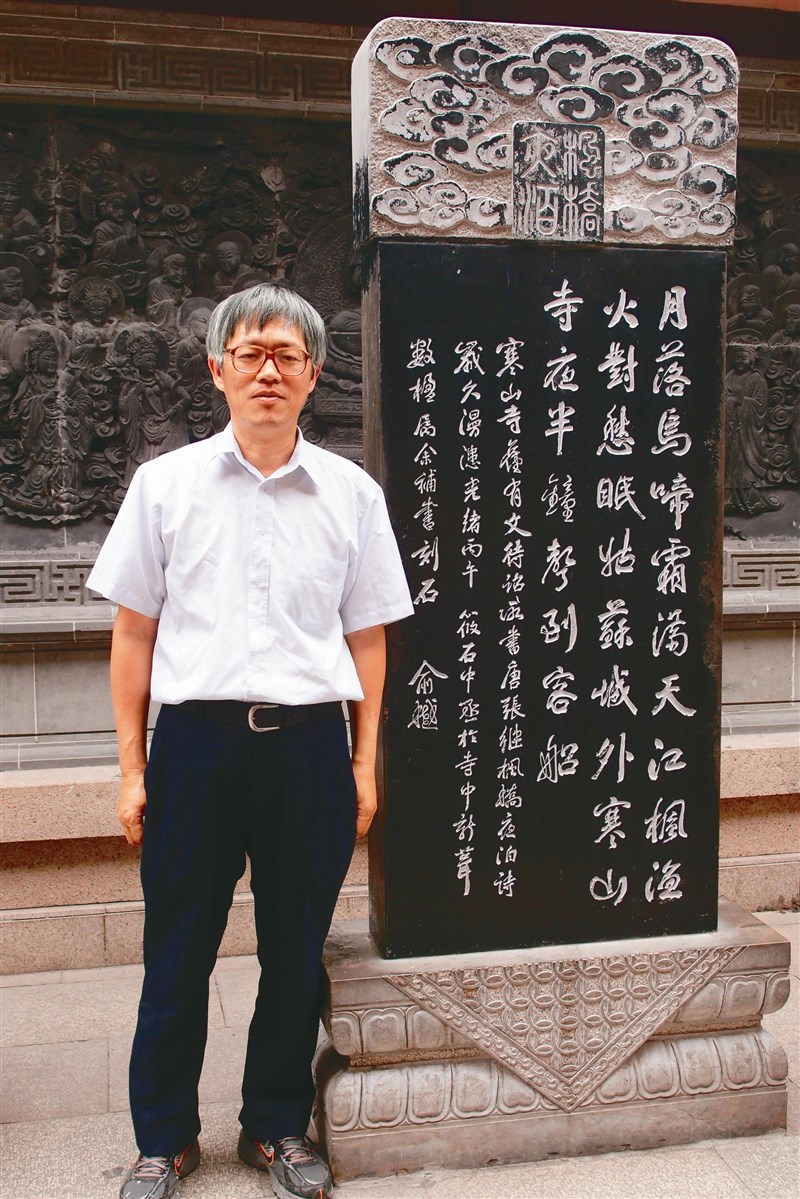 楓橋
夜泊
月落烏啼霜滿天江楓漁
火對愁眠姑蘇城外寒山
寺夜半鐘聲到客船
寒山寺舊有文待詔所書唐張繼楓橋夜泊詩
歲久漫漶光緒丙午 筱石中丞於寺中新葺
數楹屬余補書刻石
俞樾